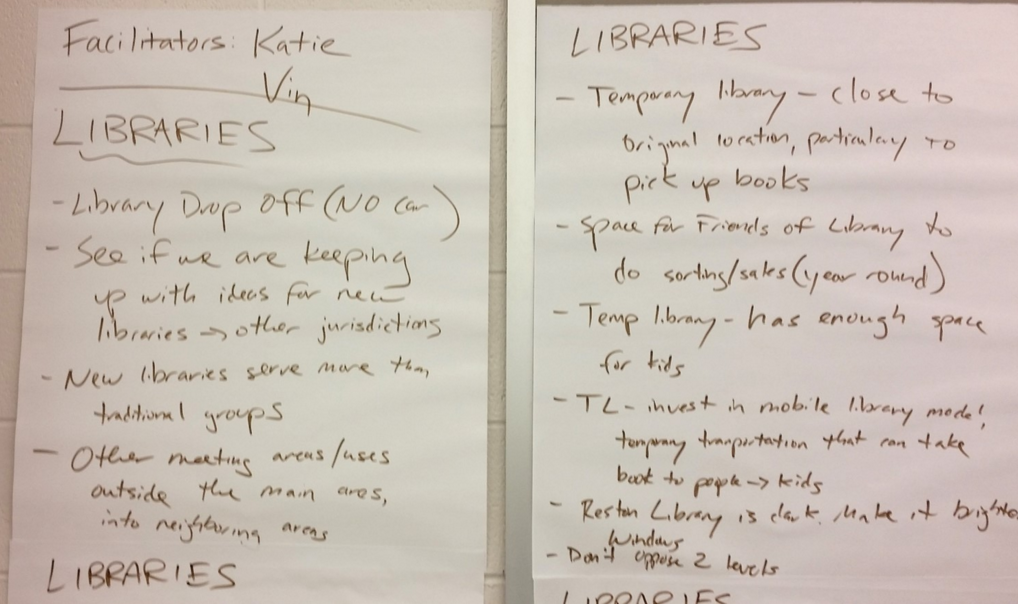 Facilitators: Katie
Vin
LIBRARIES
- Library Drop off (NO car)
- See if we are keeping
up with ideas for new
libraries → other jurisdictions
- New libraries serve more than
traditional groups
- Other meeting areas/uses
outside the main area,
into neighboring areas
LIBRARIES
LIBRARIES
- Temporary library - close to
original location, particulary to
pick up books
- Space for Friends of Library to
do sorting/sales (year round)
- Temp library - has enough space
for kids
- TL - invest in mobile library model,
temporary tranportation that can take
book to people → kids
- Reston Library is dark. Make it brighter
Windows
- Don't oppose 2 levels
LIBRARIES